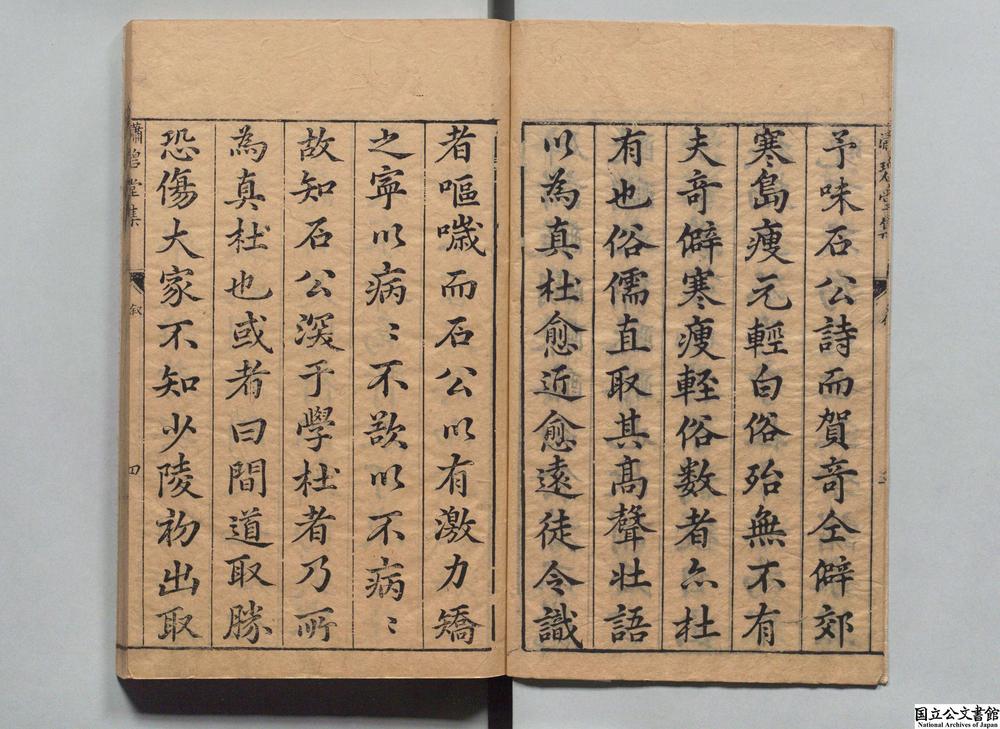 予味石公詩而賀奇仝僻郊
寒島瘦元輕白俗殆無不有
夫奇僻寒瘦輕俗数者亦杜
有也俗儒直取其髙聲壮語
以為真杜愈近愈遠徒令識
者嘔噦而石公以有激力矯
之寧以病〻不欲以不病〻
故知石公深于學杜者乃所
為真杜也或者曰間道取勝
恐傷大家不知少陵初出取
瀟碧堂集
叙
四
国立公文書館
National Archives of Japan